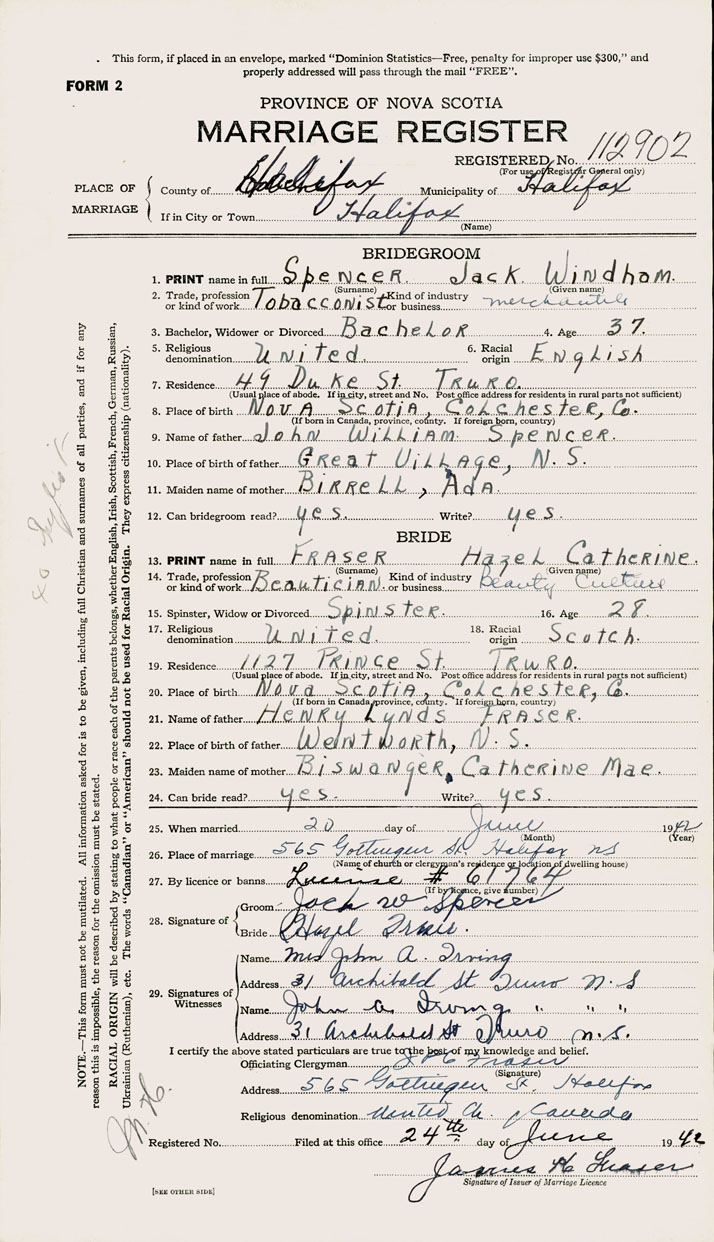 This form, if placed in an envelope, marked "Dominion Statistics—Free, penalty for improper use $300," and
properly addressed will pass through the mail "FREE".
FORM 2
PROVINCE OF NOVA SCOTIA
MARRIAGE REGISTER
REGISTERED No. 112902
(For use of Registrar General only)
PLACE OF MARRIAGE
County of Halifax Municipality of Halifax
If in City or Town Halifax
(Name)
BRIDEGROOM
1. PRINT name in full Spencer Jack Windham.
(Surname) (Given name)
2. Trade, profession or kind of work Tobacconist Kind of industry or business mercantile
3. Bachelor, Widower or Divorced Bachelor 4. Age 37.
5. Religious denomination United. 6. Racial origin English
7. Residence 49 Duke St. Truro.
(Usual place of abode. If in city, street and No. Post office address for residents in rural parts not sufficient)
8. Place of birth Nova Scotia, Colchester, Co.
(If born in Canada, province, county. If foreign born, country)
9. Name of father John William Spencer.
10. Place of birth of father Great Village, N.S.
11. Maiden name of mother Birrell, Ada.
12. Can bridegroom read? yes. Write? yes.
BRIDE
13. PRINT name in full Fraser Hazel Catherine.
(Surname) (Given name)
14. Trade, profession or kind of work Beautician. Kind of industry or business Beauty Culture
15. Spinster, Widow or Divorced Spinster. 16. Age 28.
17. Religious denomination United. 18. Racial origin Scotch.
19. Residence 1127 Prince St. Truro.
(Usual place of abode. If in city, street and No. Post office address for residents in rural parts not sufficient)
20. Place of birth Nova Scotia, Colchester, Co.
(If born in Canada, province, county. If foreign born, country)
21. Name of father Henry Lynds Fraser.
22. Place of birth of father Wentworth, N.S.
23. Maiden name of mother Biswanger, Catherine Mae.
24. Can bride read? yes. Write? yes.
25. When married 20 day of June 1942
(Month) (Year)
26. Place of marriage 565 Gottingen St, Halifax ns
(Name of church or clergyman's residence or location of dwelling house)
27. By licence or banns License # 61764
(If by licence, give number)
28. Signature of
Groom Jack W Spencer
Bride Hazel Fraser.
29. Signatures of Witnesses
Name Mrs John A. Irving
Address 31 Archibald St Truro N.S
Name John A. Irving " " "
Address 31 Archibald St Truro n.s.
I certify the above stated particulars are true to the best of my knowledge and belief.
Officiating Clergyman Fraser
(Signature)
Address 565 Gottingen St. Halifax
Religious denomination United Ch. of Canada
Registered No. Filed at this office 24th day of June 1942
James H Fraser
Signature of Issuer of Marriage Licence
[SEE OTHER SIDE]
NOTE.—This form must not be mutilated. All information asked for is to be given, including full Christian and surnames of all parties, and if for any
reason this is impossible, the reason for the omission must be stated.
RACIAL ORIGIN will be described by stating to what people or race each of the parents belongs, whether English, Irish, Scottish, French, German, Russian,
Ukrainian (Ruthenian), etc. The words "Canadian" or "American" should not be used for Racial Origin. They express citizenship (nationality).